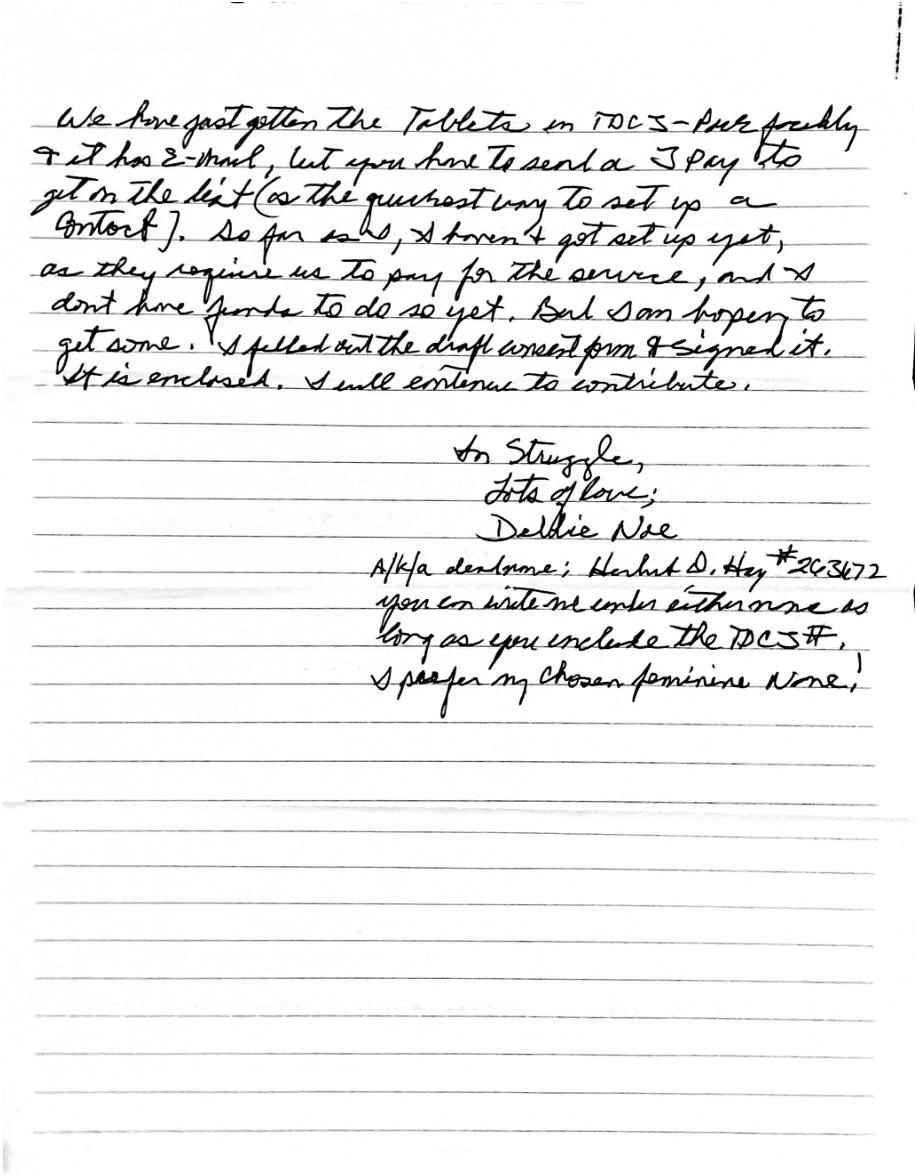 We have just gotten the Tablets in TDCJ-
& it has E-Mail, but you have to send a JPay to
get on the list (as the quickest way to set up a
Contact]. So far as I, I haven't got set up yet,
as they require us to pay for the service, and I
dont have funds to do so yet. But I am hoping to
get some. I filled out the draft consent form & signed it.
It is enclosed. I will continue to contribute.
In Struggle,
Lots of love;
Debbie Nae
A/k/a deadname; Herbert D. Hay #
you can write me under either name as
long as you include the TDCJ #.
I prefer my chosen feminine Name!